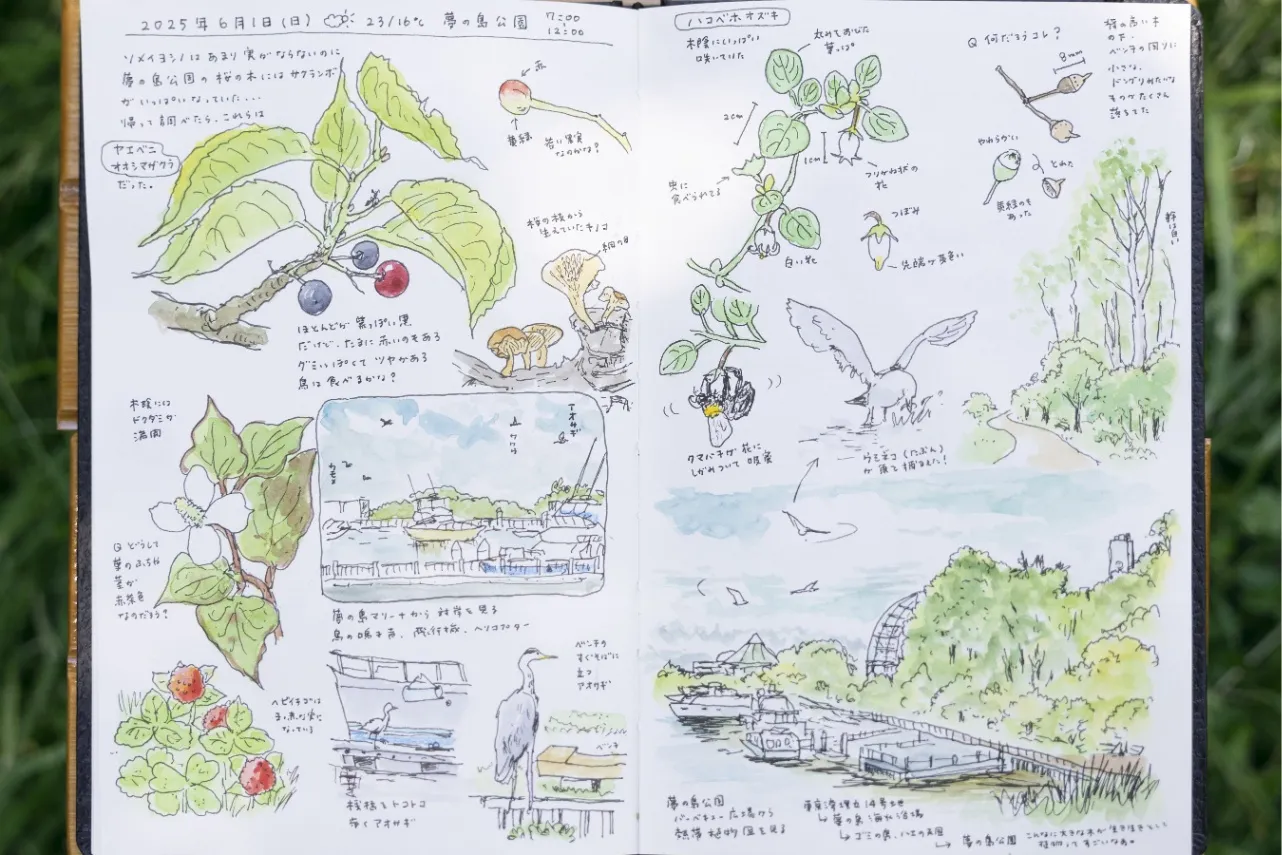 2025年6月1日(日) 23/16℃ 夢の島公園 7:00
12:00
ソメイヨシノはあまり実がならないのに
夢の島公園の桜の木にはサクランボ
がいっぱいなっていた...
帰って調べたら、これらは
ヤエベニ
オオシマザクラ
だった。
赤
黄緑
若い果実
なのかな?
桜の枝から
生えていたキノコ
ほとんどが紫っぽい黒
だけど、たまに赤いのもある
グミっぽくてツヤがある
鳥は食べるかな?
木陰には
ドクダミが
満開
Q どうして
葉のふちや
茎が
赤茶色
なのだろう?
カモメ
アオサギ
夢の島マリーナから対岸を見る
鳥の鳴き声、飛行機、ヘリコプター
ヘビイチゴは
まっ赤な実に
なっている
桟橋をトコトコ
歩くアオサギ
ベンチの
すぐそばに
立つ
アオサギ
ベンチ
ハコベホオズキ
木陰にいっぱい
咲いていた
丸みをおびた
葉っぱ
2cm
1cm
ツリガネ状の
花
虫に
食べられてる
白い花
つぼみ
先端が
クマバチが花に
しがみついて吸蜜
ウミネコ(たぶん)
Q 何だろうコレ?
8mm
やわらかい
とれた
黄緑のも
あった
背の高い木
の下、
ベンチの周りに
小さな、
ドングリみたいな
ものがたくさん
落ちてた
幹は白い
夢の島公園
バーベキュー広場から
熱帯植物園を見る
東京湾埋立14号地
夢の島海水浴場
ゴミの島、ハエの天国
夢の島公園
こんなに大きな木が生き生きとして
植物ってすごいなぁ。